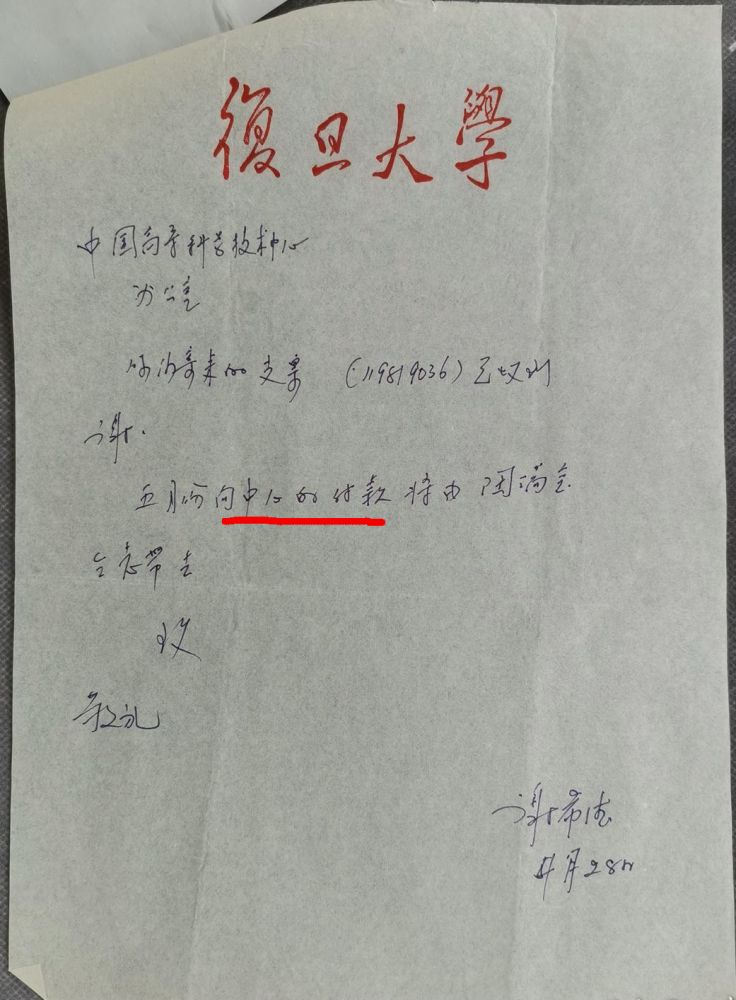 復旦大學
中国高等科学技术中心
办公室
你们寄来的支票 (119819036) 已收到
谢.
五月份向中心的付款 将由
仝志带去
致
敬礼
谢希德
4月28日